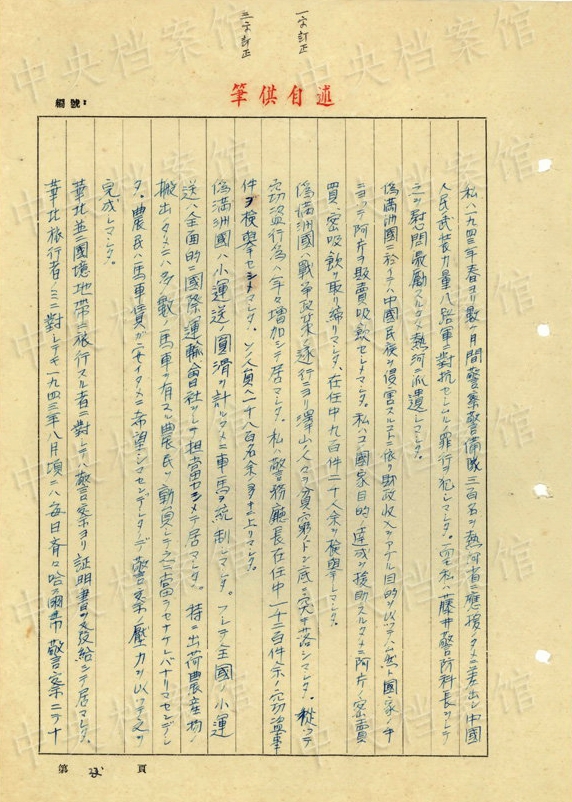 一字訂正
三字訂正
編號:
筆供自述
私ハ一九四三年春ヨリ数ヶ月間警察警備隊三百名ヲ熱河省ニ應援ノタメニ差出シ中國
人民武装力量八路軍ニ對抗セシムル罪行ヲ犯シマシタ。而モ私ハ藤井警防科長ヲシテ
之ヲ慰問激勵スルタメ熱河ニ派遣シマシタ。
偽満洲國ニ於イテハ中國民族ヲ侵害スルコトニ依リ財政收入ヲアゲル目的ヲ以ッテ公然ト國家ノ手
ニヨッテ阿片ヲ販賣吸飲セシメマシタ。私ハコノ國家目的ノ達成ヲ援助スルタメニ阿片ノ密賣
買、密吸飲ヲ取リ締リマシタ、在任中九百件二千人余ヲ検擧シマシタ。
偽満洲國ノ戰爭政策ノ遂行ニヨリ澤山ノ人々ヲ貧窮ノドン底ニ突キ落シマシタ。従ッテ
窃盗行為ハ年々増加シテ居マシタ。私ハ警務廳長在任中一千二百件余ノ窃盗事
件ヲ検擧セシメマシタ。ソノ人員ハ千八百名余ノ多キニ上リマシタ。
偽満洲國ハ小運送ノ圓滑ヲ計ルタメニ車馬ヲ統制シマシタ。ソレヲ全國ノ小運
送ハ全面的ニ國際運輸會社ヲシテ担當セシメテ居マシタ。特ニ出荷農産物ノ
搬出タメニハ多数ノ馬車ヲ有スル農民ヲ動員シテ之ニ當ラセナケレバナリマセンデシ
タ。農民ハ馬車賃ガ安イタメニ希望シマセンデシタガ警察ノ壓力ヲ以ッテ之ヲ
完成シマシタ。
華北並ニ國境地帯ニ旅行スル者ニ對シテハ警察ヨリ証明書ヲ發給シテ居マシタ。
華北旅行者ノミニ對シテモ一九四三年八月頃ニハ毎日齊々哈爾市警察ニテ十
第 頁
中央档案馆